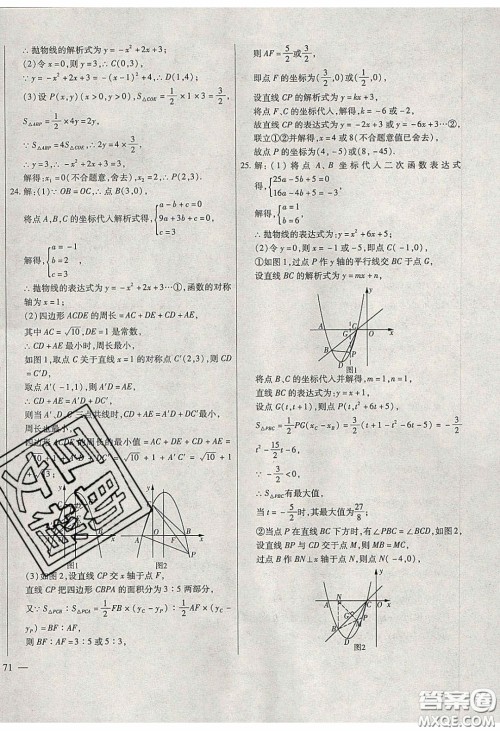 ∴抛物线的解析式为 y=-x²+2x+3;
(2)令 x=0, y=3, ∴C(0,3),
∵y=-x²+2x+3=-(x-1)²+4, ∴D(1,4);
(3)设 P(x,y)(x>0,y>0), S△COE=1/2×1×3=3/2,
S△ABP=1/2×4y=2y,
∵S△ABP=4S△COE, ∴2y=4×3/2,
∴y=3, ∴-x²+2x+3=3,
解得:x₁=0(不合题意,舍去),x₂=2,
∴P(2,3).
24.解:(1)∵OB=OC, ∴点 B(3,0),
将点 A,B,C 的坐标代入解析式得, {a-b+c=0 9a+3b+c=0 c=3
解得, {a=-1 b=2 c=3
∴抛物线的表达式为 y=-x²+2x+3…①,函数的对称
轴为 x=1;
(2)四边形 ACDE 的周长=AC+DE+CD+AE,
其中 AC=√10,DE=1 是常数,
∴CD+AE 最小时,周长最小,
如图1,取点 C 关于直线 x=1 的对称点 C′(2,3),则
CD=C′D,
取点 A′(-1,1),则 A′D=AE,
∴CD+AE=A′D+DC′,
则当 A′、D、C′三点共线时,CD+AE=A′D+DC′最小,
周长也最小,
四边形 ACDE 的周长的最小值=AC+DE+CD+AE=
√10+1+A′D+DC′=√10+1+A′C′=√10+1+
图1
图2
(3)如图2,设直线 CP 交 x 轴于点 F,
直线 CP 把四边形 CBPA 的面积分为 3:5 两部分,
又∵S△PCB:S△PCA=1/2 FB×(y_C-y_P):1/2 AF×(y_C-
y_P)=BF:AF, ∴BF:AF=3:5 或 5:3,
71 —
则 AF=5/2 或 3/2,
即点 F 的坐标为(3/2,0)或(1/2,0),
设直线 CP 的解析式为 y=kx+3,
将 F 点代入解得:k=-2 或-6,
故直线 CP 的表达式为 y=-2x+3 或 y=-6x+3…②,
联立①②解得:x=4 或 8(不合题意值已舍去),
故点 P 的坐标为(4,-5)或(8,-45).
25.解:(1)将点 A、B 坐标代入二次函数表达式
得, {25a-5b+5=0 16a-4b+5=-3
解得, {a=1 b=6
∴抛物线的表达式为 y=x²+6x+5;
(2)令 y=0,则 x=-1 或-5,即点 C(-1,0),
①如图1,过点 P 作 y 轴的平行线交 BC 于点 G,
设直线 BC 的解析式为 y=mx+n,
图1
将点 B、C 的坐标代入并解得,m=1,n=1,
∴直线 BC 的表达式为 y=x+1,
设点 G(t,t+1),则点 P(t,t²+6t+5),
S△PBC=1/2 PG(x_C-x_B)=3/2(t+1-t²-6t-5)=-3/2
t²-15/2 t-6,
∵-3/2<0,
∴S△PBC有最大值,
当 t=-5/2时,其最大值为27/8;
②当点 P 在直线 BC 下方时,有∠PBC=∠BCD,如图2,
设直线 BP 与 CD 交于点 M,则 MB=MC,
过点 B 作 BN⊥x 轴于点 N,则点 N(-4,0),
图2
答案圈
MXQE.COM